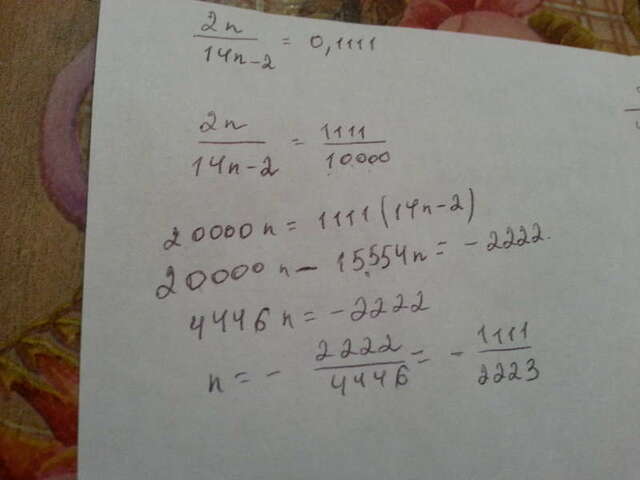 2n/14n-2 = 0,1111
2n/14n-2 = 1111/10000
20000n = 1111(14n-2)
20000n - 15554n = -2222.
4446n = -2222
n = - 2222/4446 = - 1111/2223